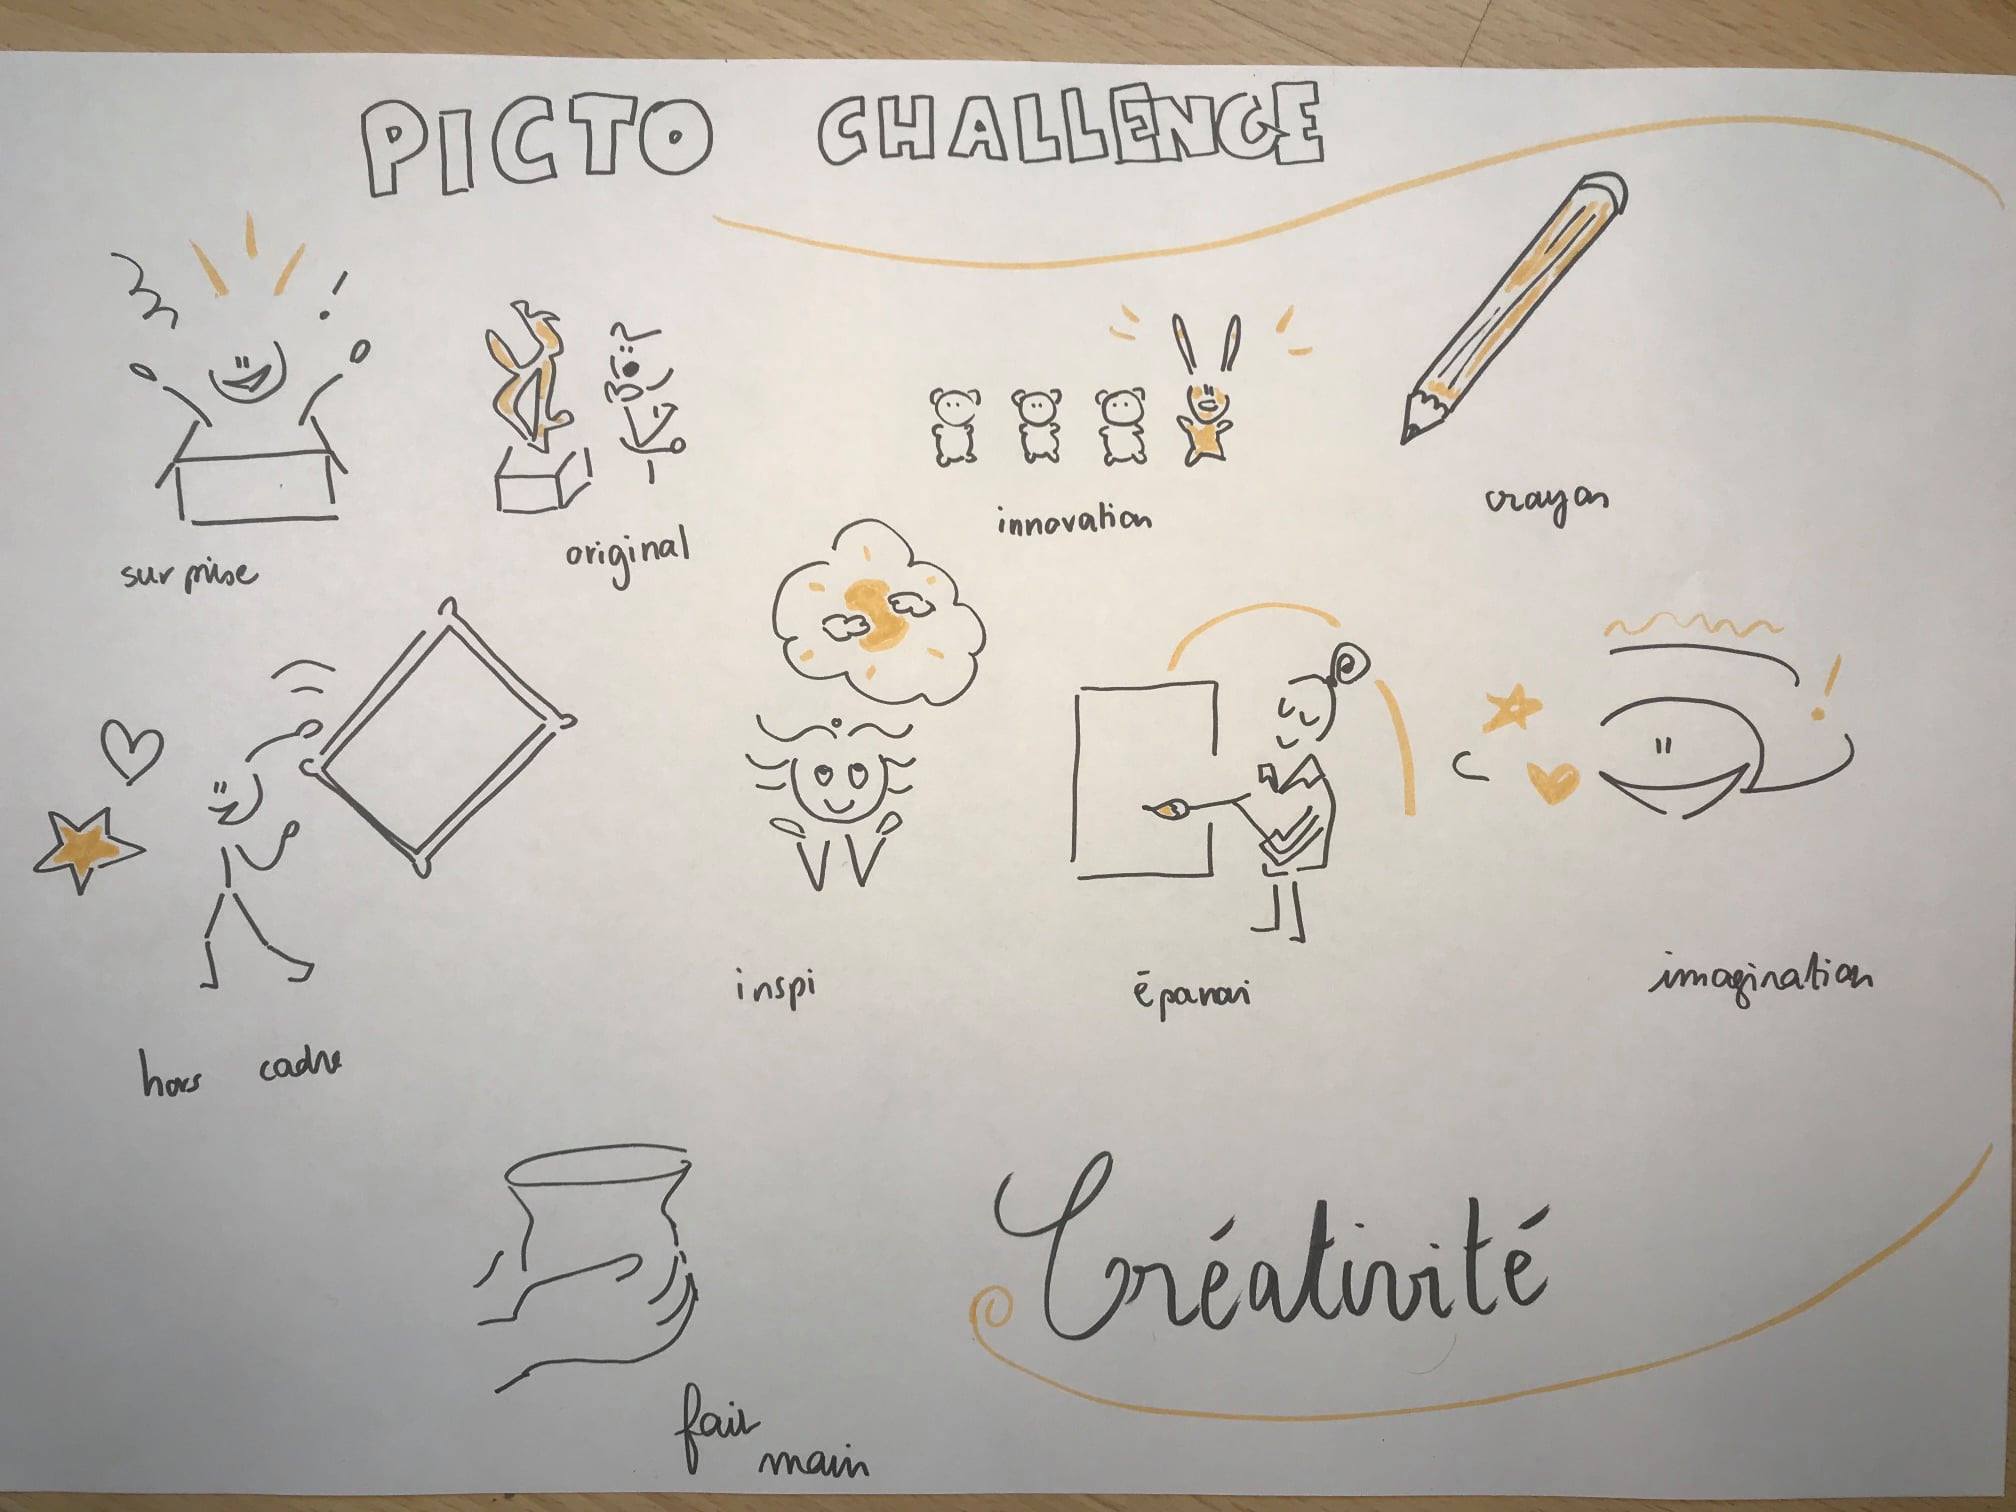 PICTO CHALLENGE
surprise
original
innovation
crayon
hors cadre
inspi
épanoui
imagination
fait
main
Créativité